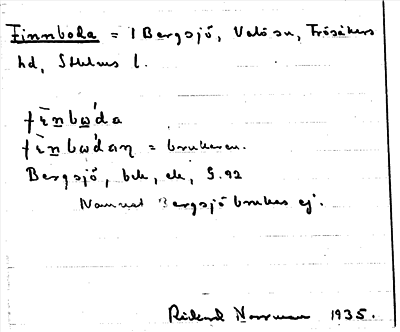 Finnboda = 1 Bergsjö, Valö sn, Frösåkers
hd, Sthlms l.
fĕ̀nbὼda
fĕ̀nbὼdaη = brukaren.
Bergsjö, bek, ek, G. 92
Namnet Bergsjö brukas ej.
Rickard Norrman 1935.